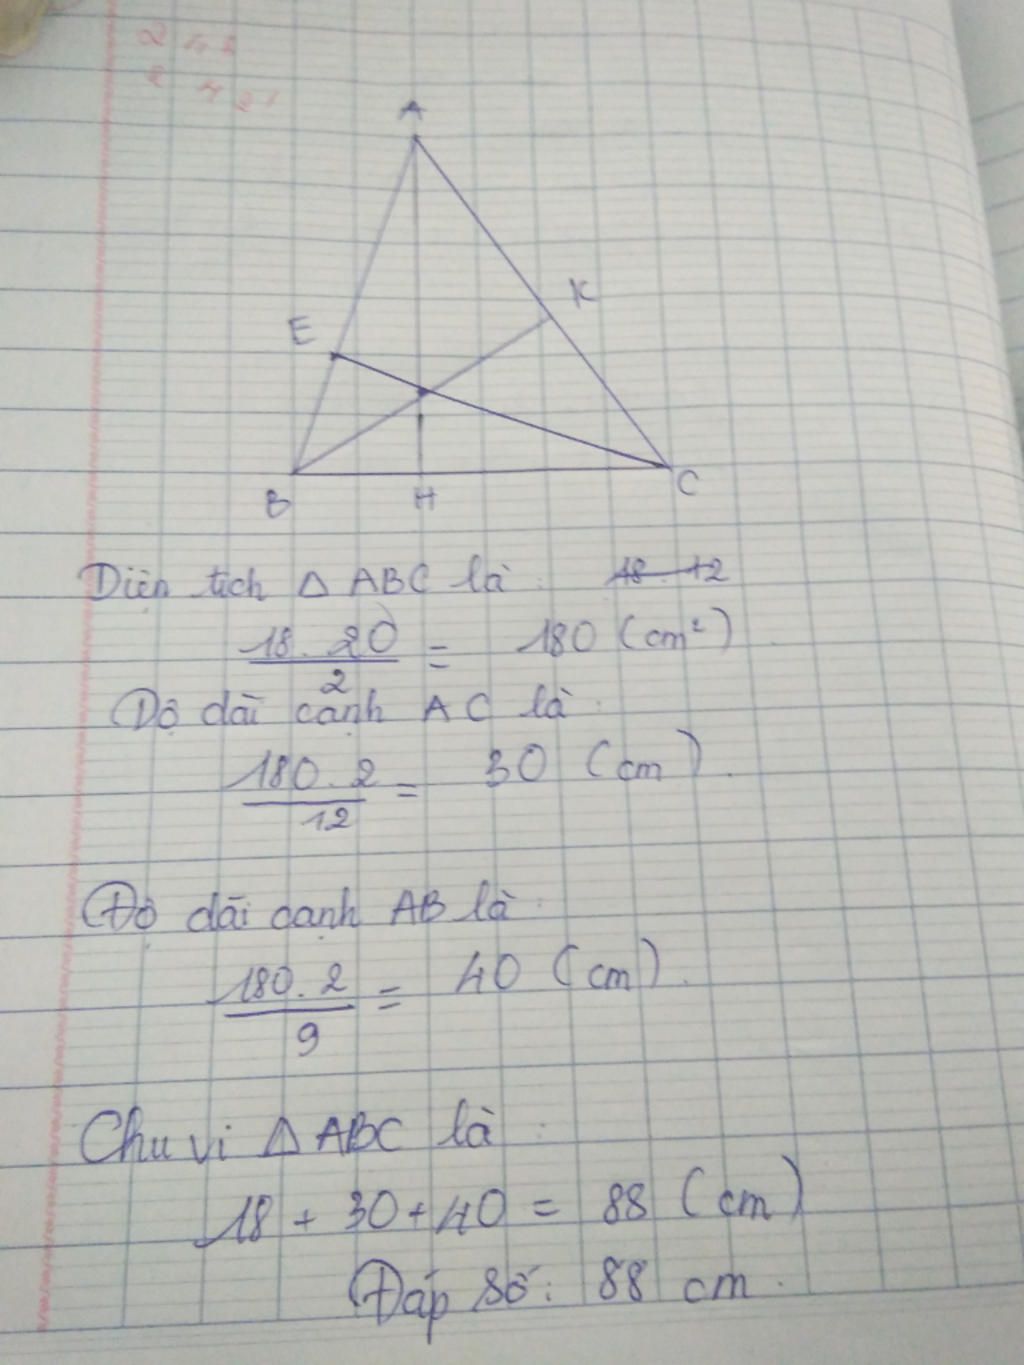 A
K
E
B H C
Diện tích △ ABC là: 18 . 12
18 . 20 / 2 = 180 (cm²)
Độ dài cạnh AC là:
180 . 2 / 12 = 30 (cm).
Độ dài cạnh AB là:
180 . 2 / 9 = 40 (cm).
Chu vi △ ABC là:
18 + 30 + 40 = 88 (cm)
Đáp số: 88 cm.